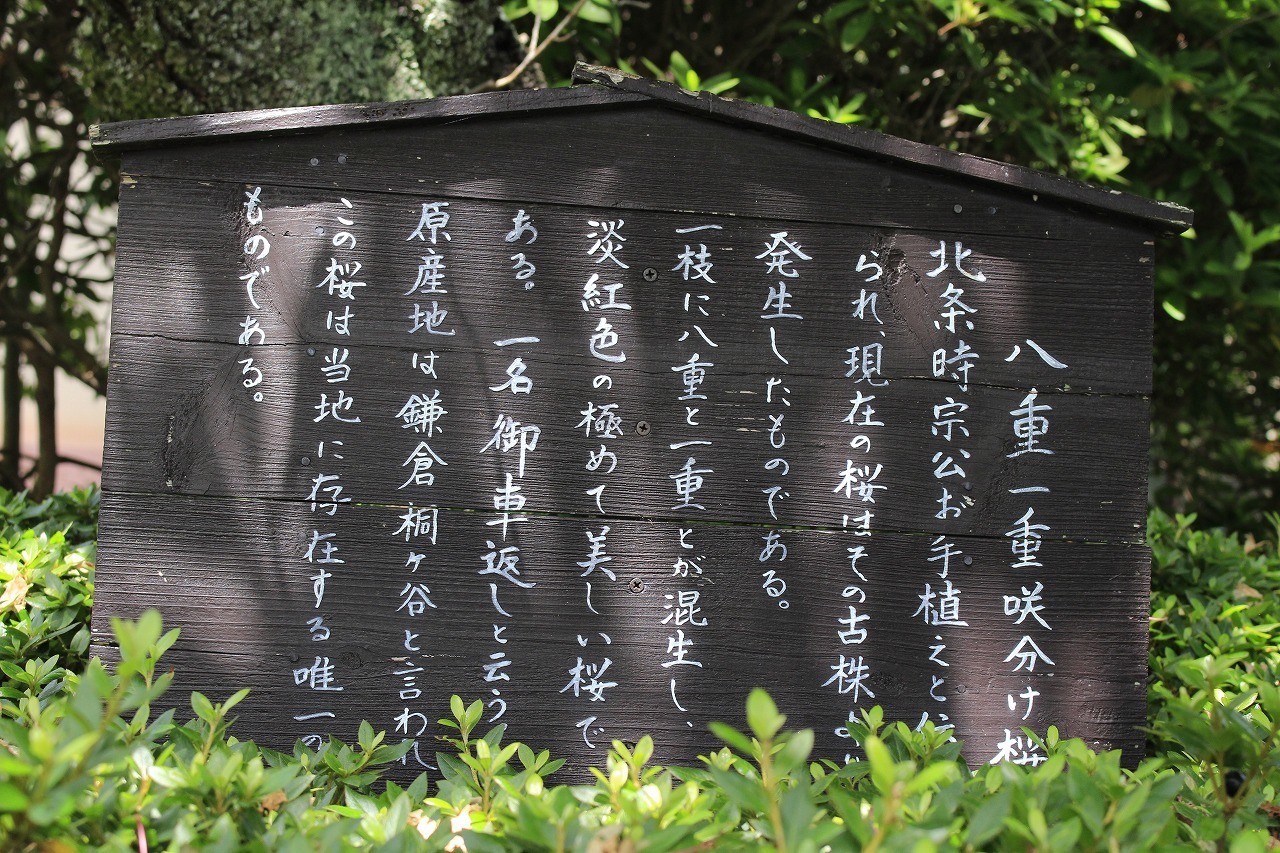 八重一重咲分け桜
北条時宗公お手植えと伝
られ、現在の桜はその古株より
発生したものである。
一枝に八重と一重とが混生し、
淡紅色の極めて美しい桜で
ある。一名御車返しと云う
原産地は鎌倉桐ヶ谷と言われ
この桜は当地に存在する唯一の
ものである。